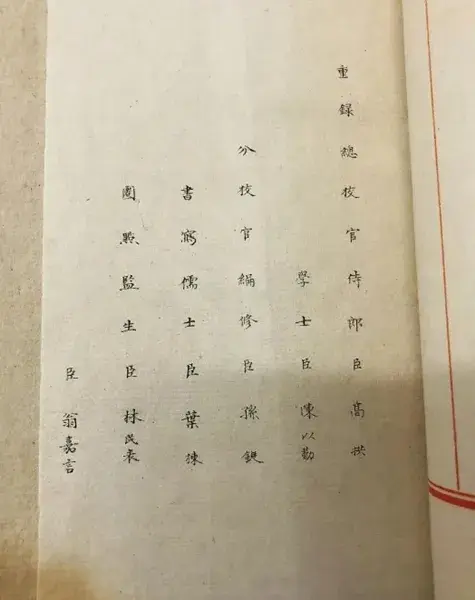 重録總校官侍郎臣高拱
學士臣陳以勤
分校官編修臣孫鋌
書寫儒士臣葉
圏㸃監生臣林民表
臣翁嘉言